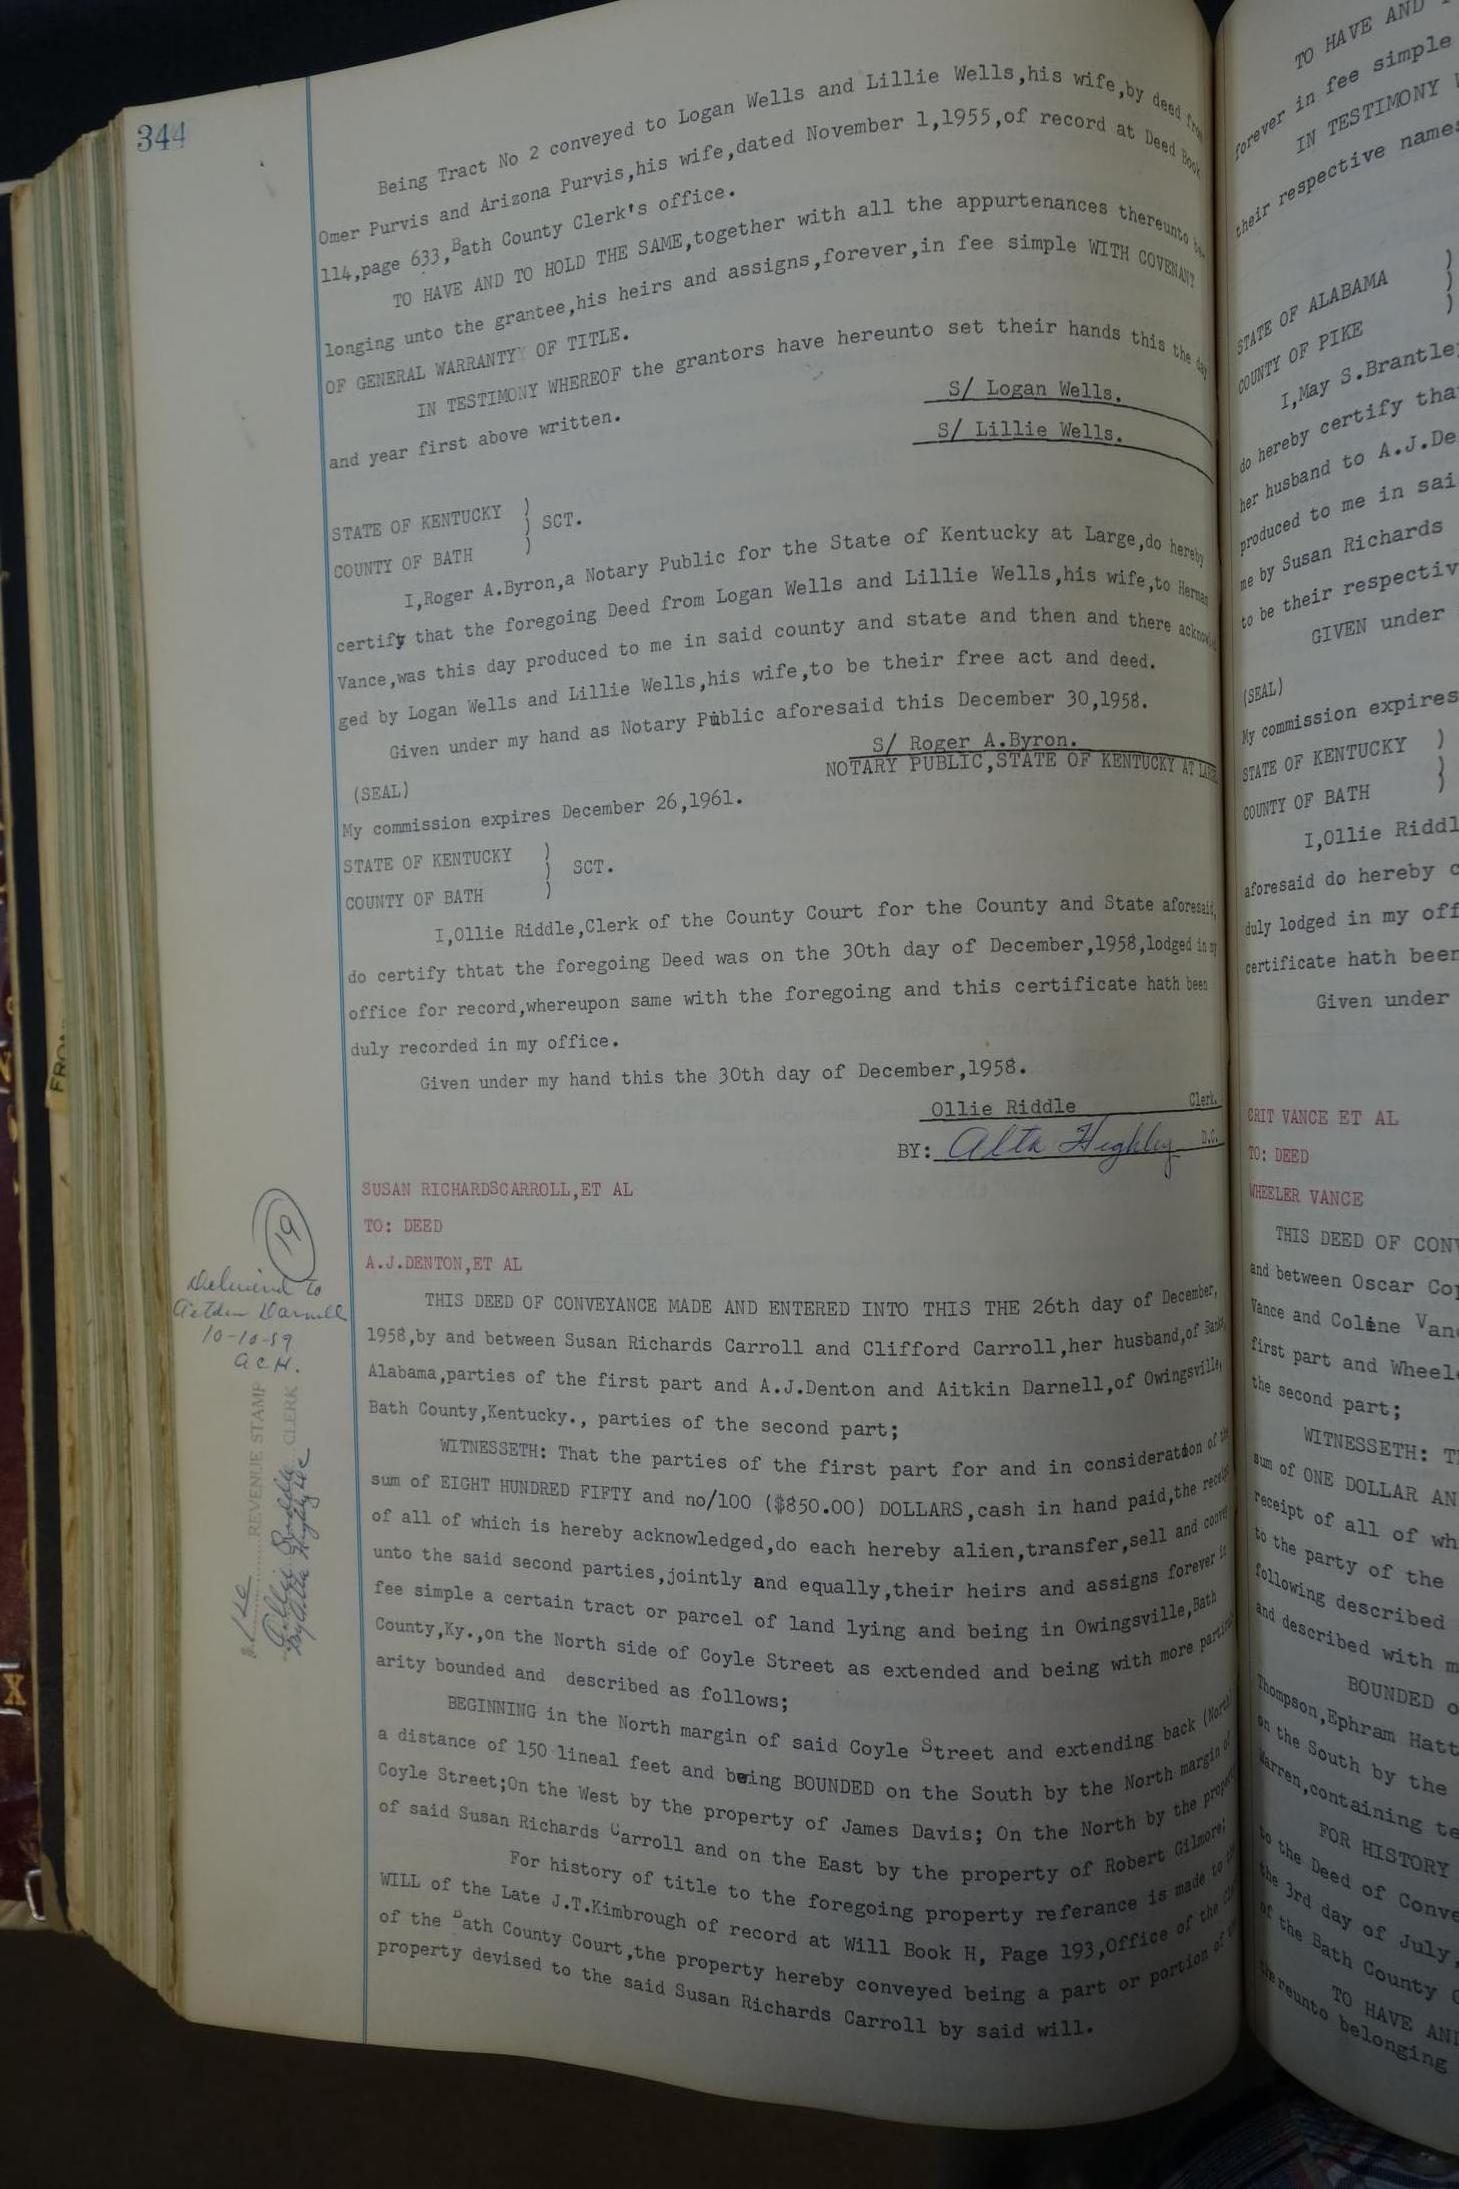 344
Being Tract No 2 conveyed to Logan Wells and Lillie Wells,his wife,by deed from
Omer Purvis and Arizona Purvis,his wife,dated November 1,1955,of record at Deed Book
114,page 633,Bath County Clerk's office.
TO HAVE AND TO HOLD THE SAME,together with all the appurtenances thereunto be-
longing unto the grantee,his heirs and assigns,forever,in fee simple WITH COVENANT
OF GENERAL WARRANTY OF TITLE.
IN TESTIMONY WHEREOF the grantors have hereunto set their hands this the day
and year first above written.
S/ Logan Wells.
S/ Lillie Wells.
STATE OF KENTUCKY )
) SCT.
COUNTY OF BATH )
I,Roger A.Byron,a Notary Public for the State of Kentucky at Large,do hereby
certify that the foregoing Deed from Logan Wells and Lillie Wells,his wife,to Herman
Vance,was this day produced to me in said county and state and then and there acknowled
ged by Logan Wells and Lillie Wells,his wife,to be their free act and deed.
Given under my hand as Notary Public aforesaid this December 30,1958.
S/ Roger A.Byron.
NOTARY PUBLIC,STATE OF KENTUCKY AT LARGE
(SEAL)
My commission expires December 26,1961.
STATE OF KENTUCKY )
) SCT.
COUNTY OF BATH )
I,Ollie Riddle,Clerk of the County Court for the County and State aforesaid,
do certify thtat the foregoing Deed was on the 30th day of December,1958,lodged in my
office for record,whereupon same with the foregoing and this certificate hath been
duly recorded in my office.
Given under my hand this the 30th day of December,1958.
Ollie Riddle Clerk.
BY: Alta Highley D.C.
SUSAN RICHARDSCARROLL,ET AL
TO: DEED
A.J.DENTON,ET AL
19
Delivered to
Aitkin Darnell
10-10-59
A.C.H.
REVENUE STAMP
Ollie Riddle CLERK
By Alta Highley D.C.
THIS DEED OF CONVEYANCE MADE AND ENTERED INTO THIS THE 26th day of December,
1958,by and between Susan Richards Carroll and Clifford Carroll,her husband,of Banks,
Alabama,parties of the first part and A.J.Denton and Aitkin Darnell,of Owingsville,
Bath County,Kentucky., parties of the second part;
WITNESSETH: That the parties of the first part for and in consideration of the
sum of EIGHT HUNDRED FIFTY and no/100 ($850.00) DOLLARS,cash in hand paid,the receipt
of all of which is hereby acknowledged,do each hereby alien,transfer,sell and convey
unto the said second parties,jointly and equally,their heirs and assigns forever in
fee simple a certain tract or parcel of land lying and being in Owingsville,Bath
County,Ky.,on the North side of Coyle Street as extended and being with more particul
arity bounded and described as follows;
BEGINNING in the North margin of said Coyle Street and extending back (North)
a distance of 150 lineal feet and being BOUNDED on the South by the North margin of
Coyle Street;On the West by the property of James Davis; On the North by the property
of said Susan Richards Carroll and on the East by the property of Robert Gilmore;
For history of title to the foregoing property referance is made to the
WILL of the Late J.T.Kimbrough of record at Will Book H, Page 193,Office of the Clerk
of the Bath County Court,the property hereby conveyed being a part or portion of
property devised to the said Susan Richards Carroll by said will.
TO HAVE AND
forever in fee simple
IN TESTIMONY
their respective names
STATE OF ALABAMA )
)
COUNTY OF PIKE )
I,May S.Brantle
do hereby certify tha
her husband to A.J.De
produced to me in sai
me by Susan Richards
to be their respectiv
GIVEN under
(SEAL)
My commission expires
STATE OF KENTUCKY )
COUNTY OF BATH )
I,Ollie Riddl
aforesaid do hereby c
duly lodged in my off
certificate hath been
Given under
CRIT VANCE ET AL
TO: DEED
WHEELER VANCE
THIS DEED OF CONV
and between Oscar Co
Vance and Coline Van
first part and Wheele
the second part;
WITNESSETH: T
sum of ONE DOLLAR AN
receipt of all of wh
to the party of the
following described
and described with m
BOUNDED o
Thompson,Ephram Hatt
on the South by the
Warren,containing te
FOR HISTORY
to the Deed of Conve
the 3rd day of July,
of the Bath County C
TO HAVE AND
thereunto belonging
FROM
X